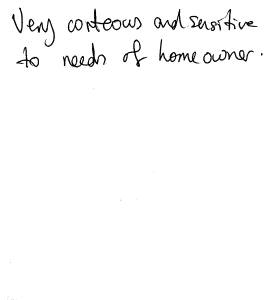 Very corteous and sensitive
to needs of home owner.